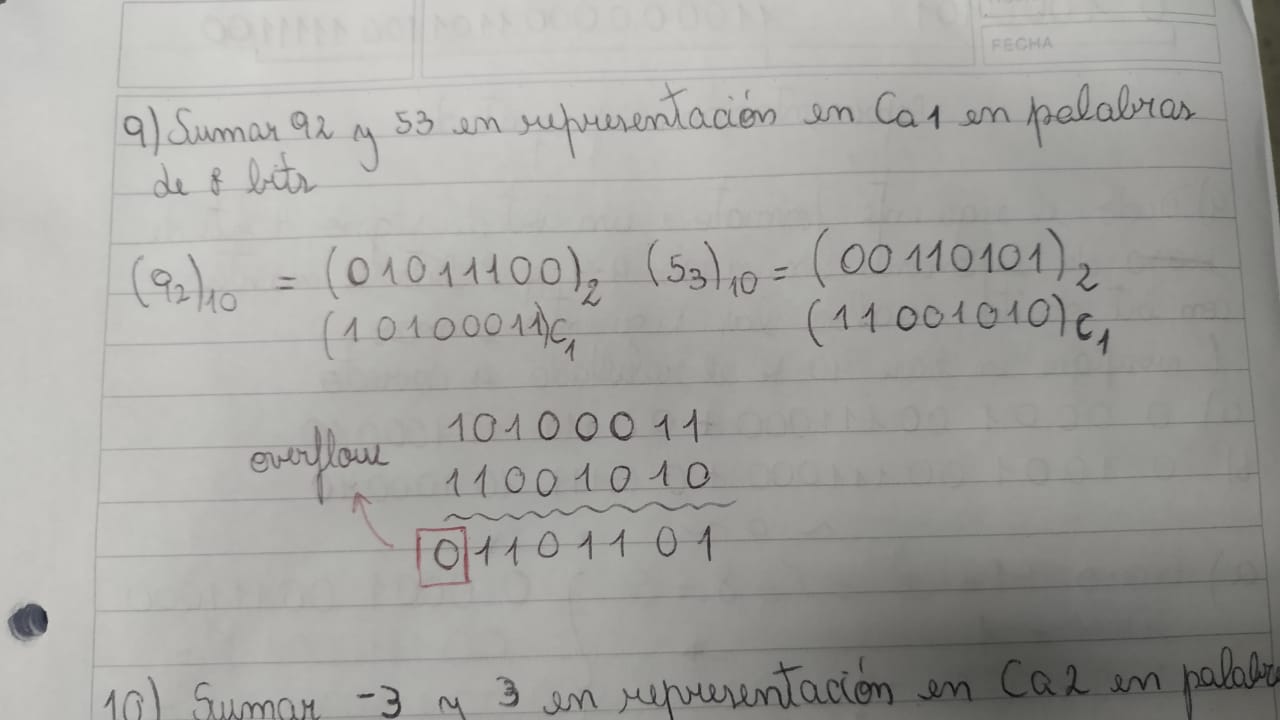 FECHA
9) Sumar 92 y 53 en representación en Ca1 en palabras
de 8 bits
(92)10 = (01011100)2 (53)10 = (00110101)2
(10100011)C1 (11001010)C1
10100011
overflow 11001010
01101101
10) Sumar -3 y 3 en representación en Ca2 en palabra